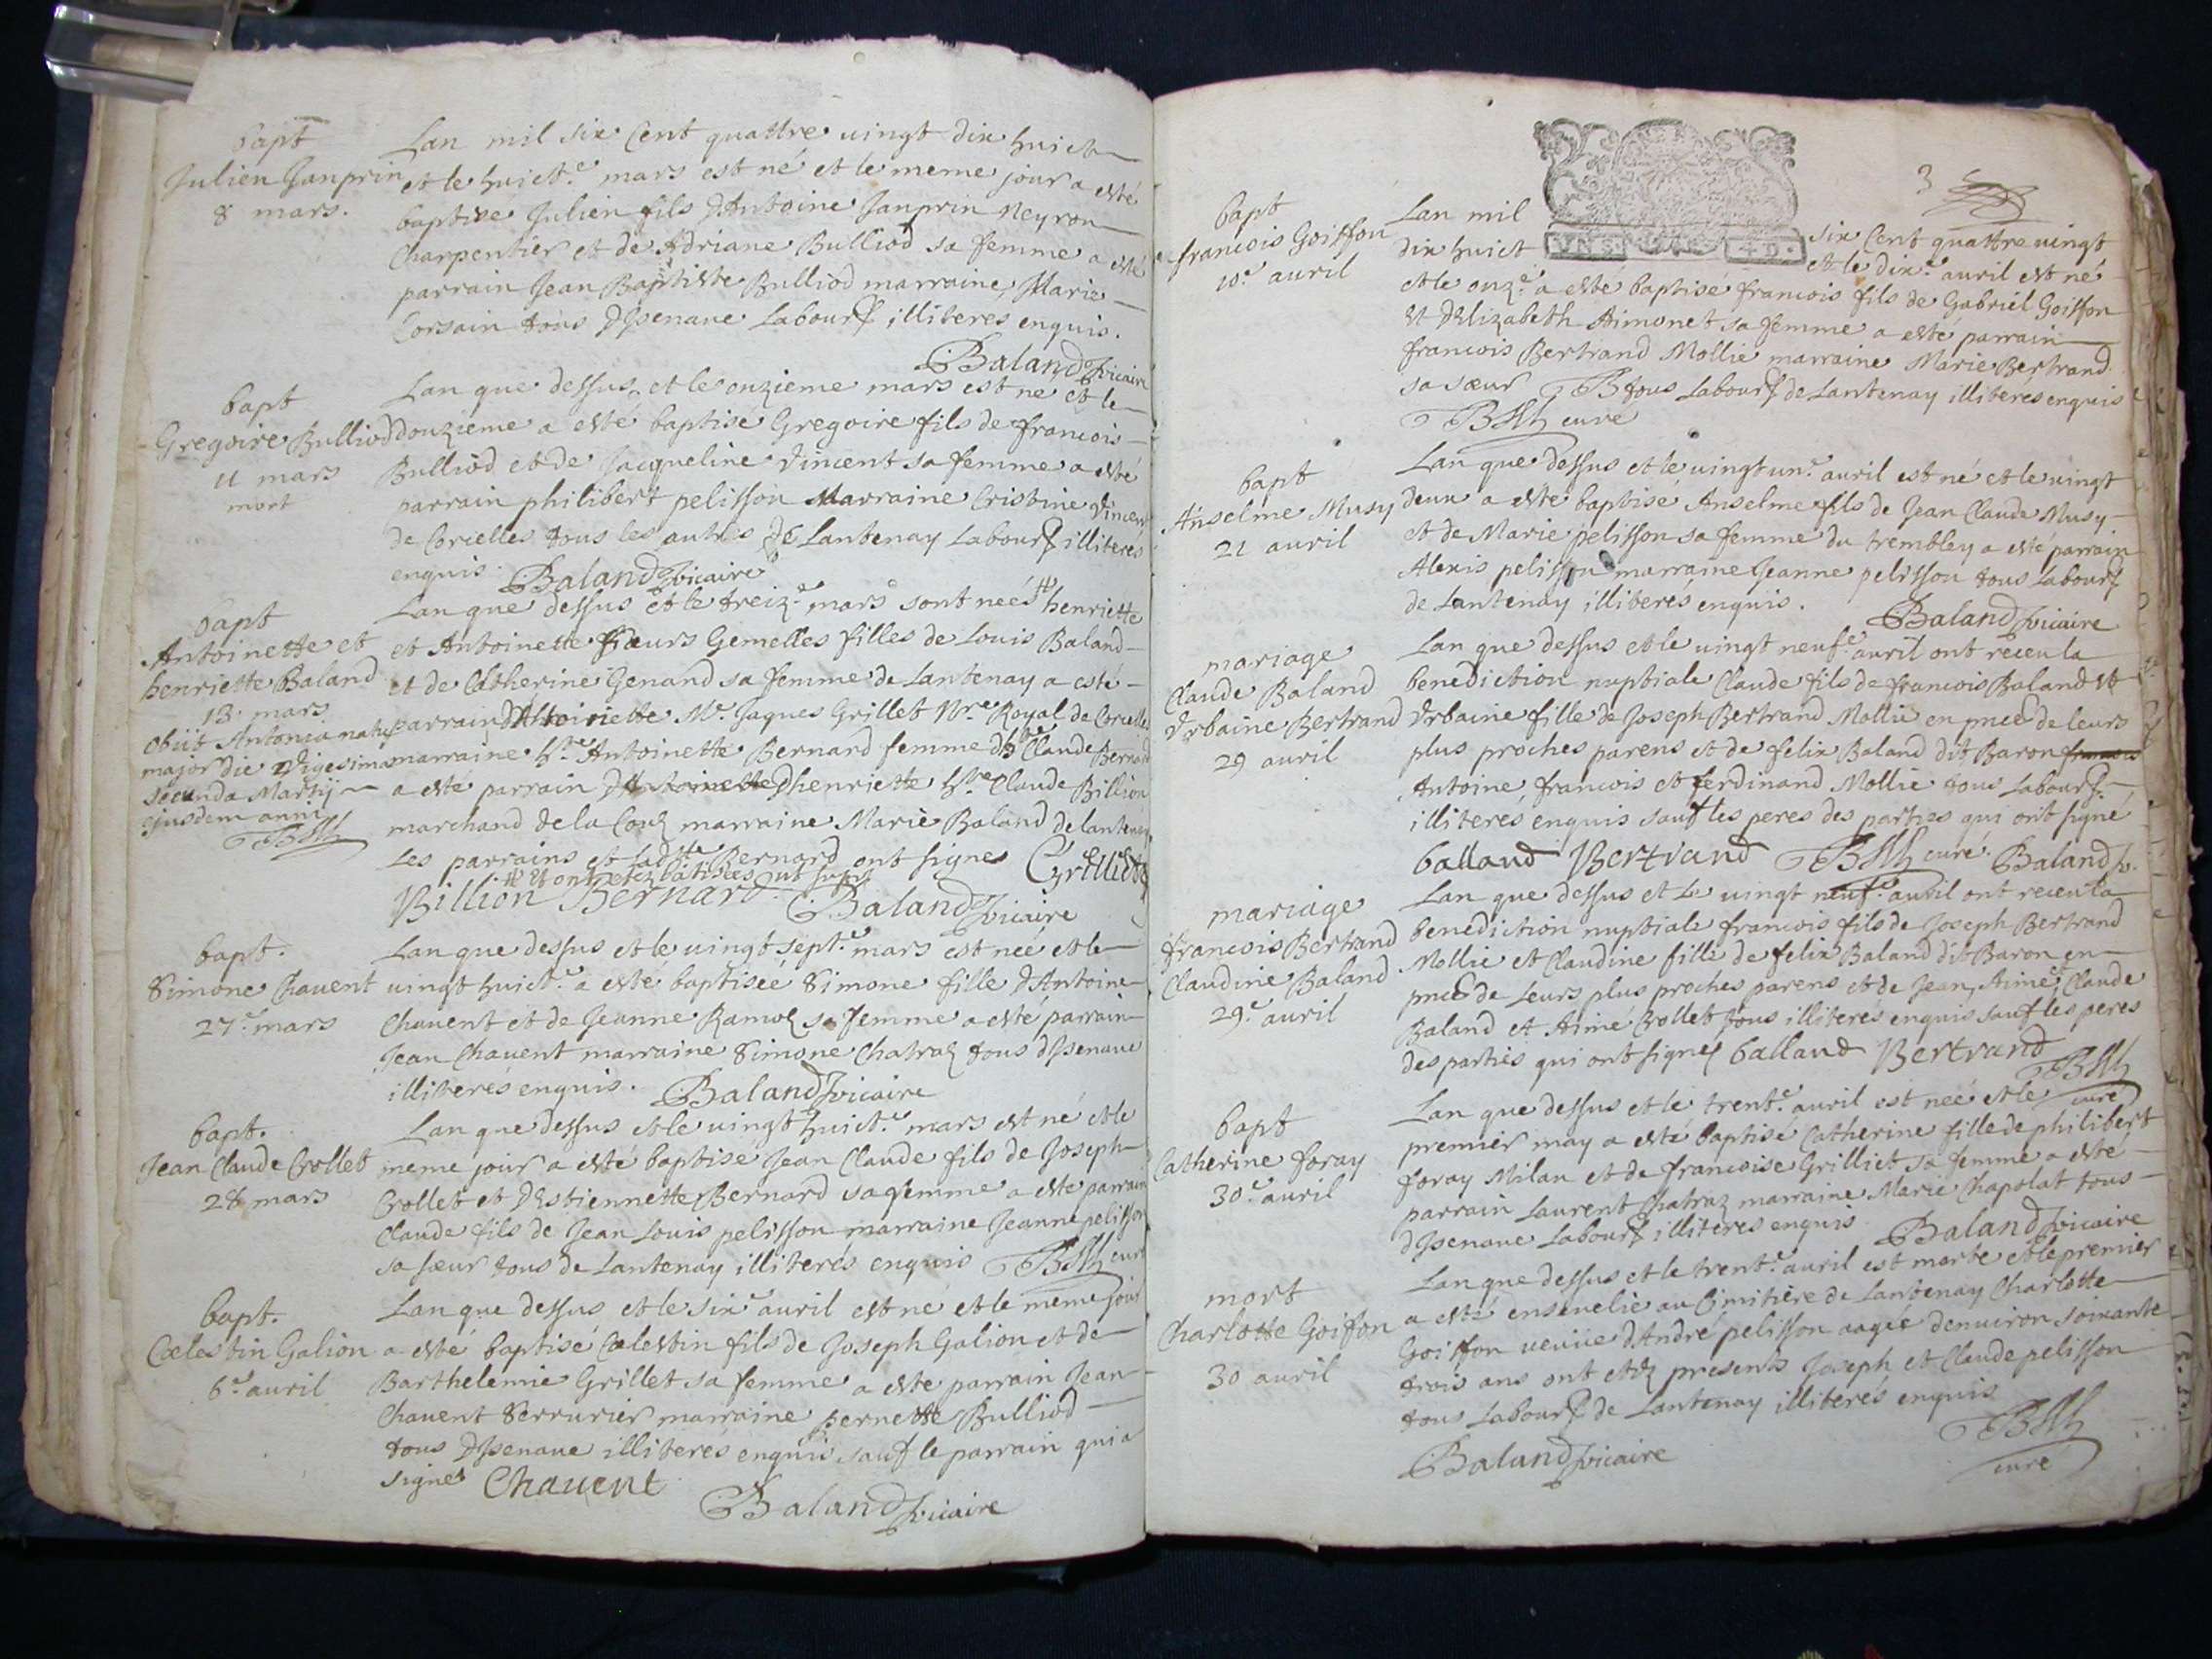 bapt
Julien Janprin
8 mars.
Lan mil six Cent quattre vingt dix huict
et le huict.e mars est né et le meme jour a esté
baptisé Julien fils d'Antoine Janprin Neyron
Charpentier et de Adriane Bulliod sa femme a esté
parrain Jean Baptiste Bulliod marraine Marie
Corsain tous d'Isenave Labour illiteres enquis.
Baland vicaire
bapt
Gregoire Bulliod
11 mars
mort
Lan que dessus et le onzieme mars est né et le
douzieme a esté baptisé Gregoire fils de francois
Bulliod et de Jacqueline vincent sa femme a esté
parrain philibert pelisson Marraine Cristine vincent
de Corcelles tous les autres de Lantenay Labour illiterés
enquis. Baland vicaire
bapt
Antoinette et
henriette Baland
13. mars
obiit Antonia natu
major die vigesima
secunda Martij
ejusdem anni
Lan que dessus et le treiz.e mars sont neés henriette
et Antoinette sœurs Gemelles filles de Louis Baland
et de Catherine Genand sa femme de Lantenay a esté
parrain d'Antoinette Me. Jaques Grillet Nre Royal de Corcelles
marraine h.te Antoinette Bernard femme d'h. Claude Bernard
a esté parrain d'henriette h.te Claude Billion
marchand de la Couz marraine Marie Baland de lantenay
Les parrains et ladte Bernard ont signes Grilliet
et ont etez batisées ut supra
Billion Bernard Baland vicaire
bapt.
Simone Chavent
27.e mars
Lan que dessus et le vingt sept.e mars est neé et le
vingt huict.e a esté baptiseé Simone fille d'Antoine
Chavent et de Jeanne Ramoz sa femme a esté parrain
Jean Chavent marraine Simone Chatraz tous d'Isenave
illiterés enquis. Baland vicaire
bapt.
Jean Claude Crollet
28 mars
Lan que dessus et le vingt huict.e mars est né et le
meme jour a esté baptisé Jean Claude fils de Joseph
Crollet et d'Estiennette Bernard sa femme a este parrain
Claude fils de Jean Louis pelisson marraine Jeanne pelisson
sa sœur tous de Lantenay illiterés enquis curé
bapt.
Cœlestin Galion
6.e avril
Lan que dessus et le six.e avril est né et le meme jour
a esté baptisé Cœlestin fils de Joseph Galion et de
Barthelemie Grillet sa femme a este parrain Jean
Chavent Serrurier marraine pernette Bulliod
tous d'Isenave illiterés enquis sauf le parrain qui a
signé Chavent
Baland vicaire
3
bapt
francois Goiffon
10.e avril
Lan mil six Cent quattre vingt
dix huict et le dix.e avril est né
et le onz.e a esté baptisé francois fils de Gabriel Goiffon
et d'Elizabeth Aimonet sa femme a este parrain
francois Bertrand Mollie marraine Marie Bertrand
sa sœur tous Labour de Lantenay illiterés enquis
curé
bapt
Anselme Musy
21 avril
Lan que dessus et le vingt un.e avril est né et le vingt
deux a este baptisé Anselme fils de Jean Claude Musy
et de Marie pelisson sa femme du trembley a esté parrain
Alexis pelisson marraine Jeanne pelisson tous Labour
de Lantenay illiterés enquis. Baland vicaire
mariage
Claude Baland
Urbaine Bertrand
29 avril
Lan que dessus et le vingt neuf.e avril ont receu la
benediction nuptiale Claude fils de francois Baland et
Urbaine fille de Joseph Bertrand Mollie en pnce de leurs
plus proches parens et de felix Baland dit Baron francois
Antoine, francois et ferdinand Mollie tous Labour
illiterés enquis sauf les peres des parties qui ont signé
balland Bertrand curé. Baland v.
mariage
francois Bertrand
Claudine Baland
29.e avril
Lan que dessus et Le vingt neuf.e avril ont receu la
benediction nuptiale francois fils de Joseph Bertrand
Mollie et Claudine fille de felix Baland dit Baron en
pnce de Leurs plus proches parens et de Jean, Aimé, et Claude
Baland et Aimé Crollet tous illiteres enquis sauf les peres
des parties qui ont signé balland Bertrand
curé
bapt
Catherine foray
30.e avril
Lan que dessus et le trent.e avril est neé et le
premier may a esté baptisé Catherine fille de philibert
foray Milan et de francoise Grilliet sa femme a esté
parrain Laurent Chatraz marraine Marie Chapolat tous
d'Isenave Labour illiteres enquis Baland vicaire
mort
Charlotte Goifon
30 avril
Lan que dessus et le trent.e avril est morte et le premier
a esté ensevelie au Cimitiere de Lantenay Charlotte
Goiffon veuve d'André pelisson aageé denviron soixante
trois ans ont etez presents Joseph et Claude pelisson
tous Labour de Lantenay illiterés enquis
Baland vicaire curé